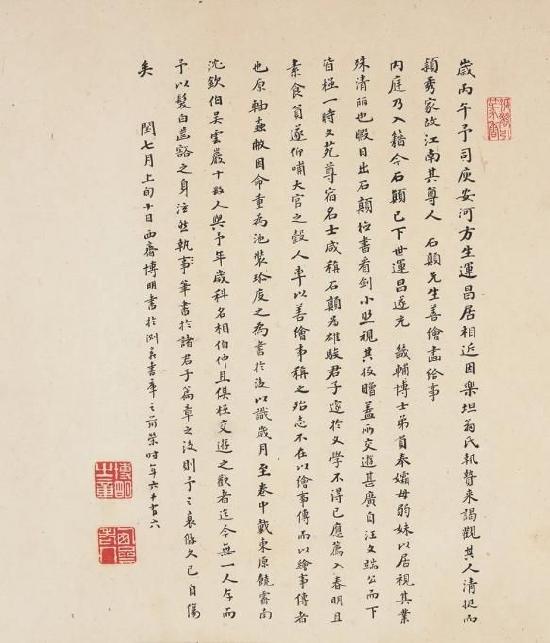 歲丙午予司庾安河方生運昌居相近因樂坦翁氏執贄來謁觀其人清挺而
穎秀家故江南其尊人 石顛先生善繪畵給事
內庭乃入籍今石顛已下世運昌遂充 畿輔博士弟員奉孀母弱妹以居視其業
殊清麗也暇日出石顛撿書看劍小照視其投贈蓋所交遊甚廣自汪文端公而下
皆極一時文苑尊宿名士咸稱石顛為雄駿君子邃於文學不得已應薦入春明且
素食貧遂仰嘯大官之穀人率以善繪事稱之殆志不在以繪事傳而以繪事傳者
也原軸蠹敝因命重為池裝珍庋之為書於後以識歲月至卷中戴東原饒霽南
沈欽伯吳雲巖十數人與予年歲科名相伯仲且俱極交遊之歡者迄今無一人存而
予以髮白齒豁之身泫然執事筆書於諸君子篇章之後則予之衰久已自傷
矣 閏七月上旬十日西齋博明書於書之前榮時年六十有六